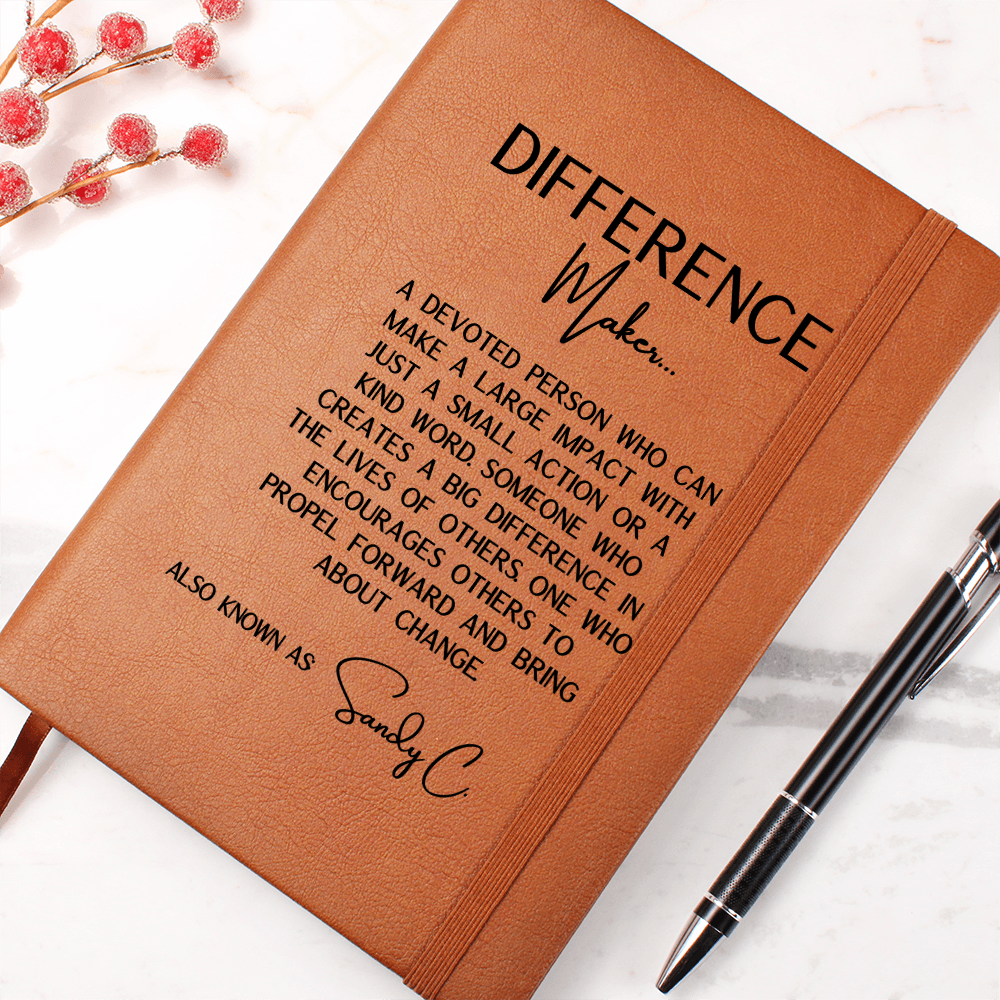 DIFFERENCE
Maker...
A DEVOTED PERSON WHO CAN
MAKE A LARGE IMPACT WITH
JUST A SMALL ACTION OR A
KIND WORD. SOMEONE WHO
CREATES A BIG DIFFERENCE IN
THE LIVES OF OTHERS. ONE WHO
ENCOURAGES OTHERS TO
PROPEL FORWARD AND BRING
ABOUT CHANGE
ALSO KNOWN AS: Sandy C.